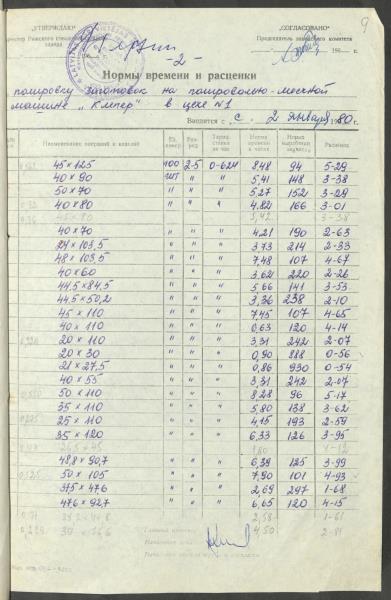 9
„УТВЕРЖДАЮ"
„СОГЛАСОВАНО"
Директор Рижского
завода
Председатель заводского комитета
198 г.
-2-
Нормы времени и расценки
полировку заготовок на полировально-моечной
машине „Кипер" в цехе №1
Вводится с с. 2 января 1980г.
Наименование операций и изделий Ед. измер. Раз-ряд Тариф. ставка за час Норма времени в часах Норма выработки Расценка
45 × 125 100 2-5 0-624 8.48 94 5-29
40 × 90 шт " " 5,41 148 3-38
50 × 70 " " " 5,27 152 3-29
40 × 80 " " " 4,82 166 3-01
45 × 80 5,42 3-38
40 × 70 " " " 4,21 190 2-63
24 × 103,5 " " " 3,73 214 2-33
48 × 103,5 " " " 7,48 107 4-67
40 × 60 " " " 3,62 220 2-26
44,5 × 84,5 " " " 5,66 141 3-53
44,5 × 50,2 " " " 3,36 238 2-10
45 × 110 " " " 7,45 107 4-65
40 × 110 " " " 6,63 120 4-14
20 × 110 " " " 3,31 242 2-07
20 × 30 " " " 0,90 888 0-56
21 × 27,5 " " " 0,86 930 0-54
40 × 55 " " " 3,31 242 2-07
50 × 110 " " " 8,28 96 5-17
35 × 110 " " " 5,80 138 3-62
25 × 110 " " " 4,15 193 2-59
35 × 120 " " " 6,33 126 3-95
1,80 1-12
48,8 × 90,7 " " " 6,39 125 3-99
50 × 105 " " " 7,90 101 4-93
37,5 × 47,6 " " " 2,69 297 1-68
47,6 × 92,7 " " " 6,65 120 4-15
2,58 1-61
4,50 2-81